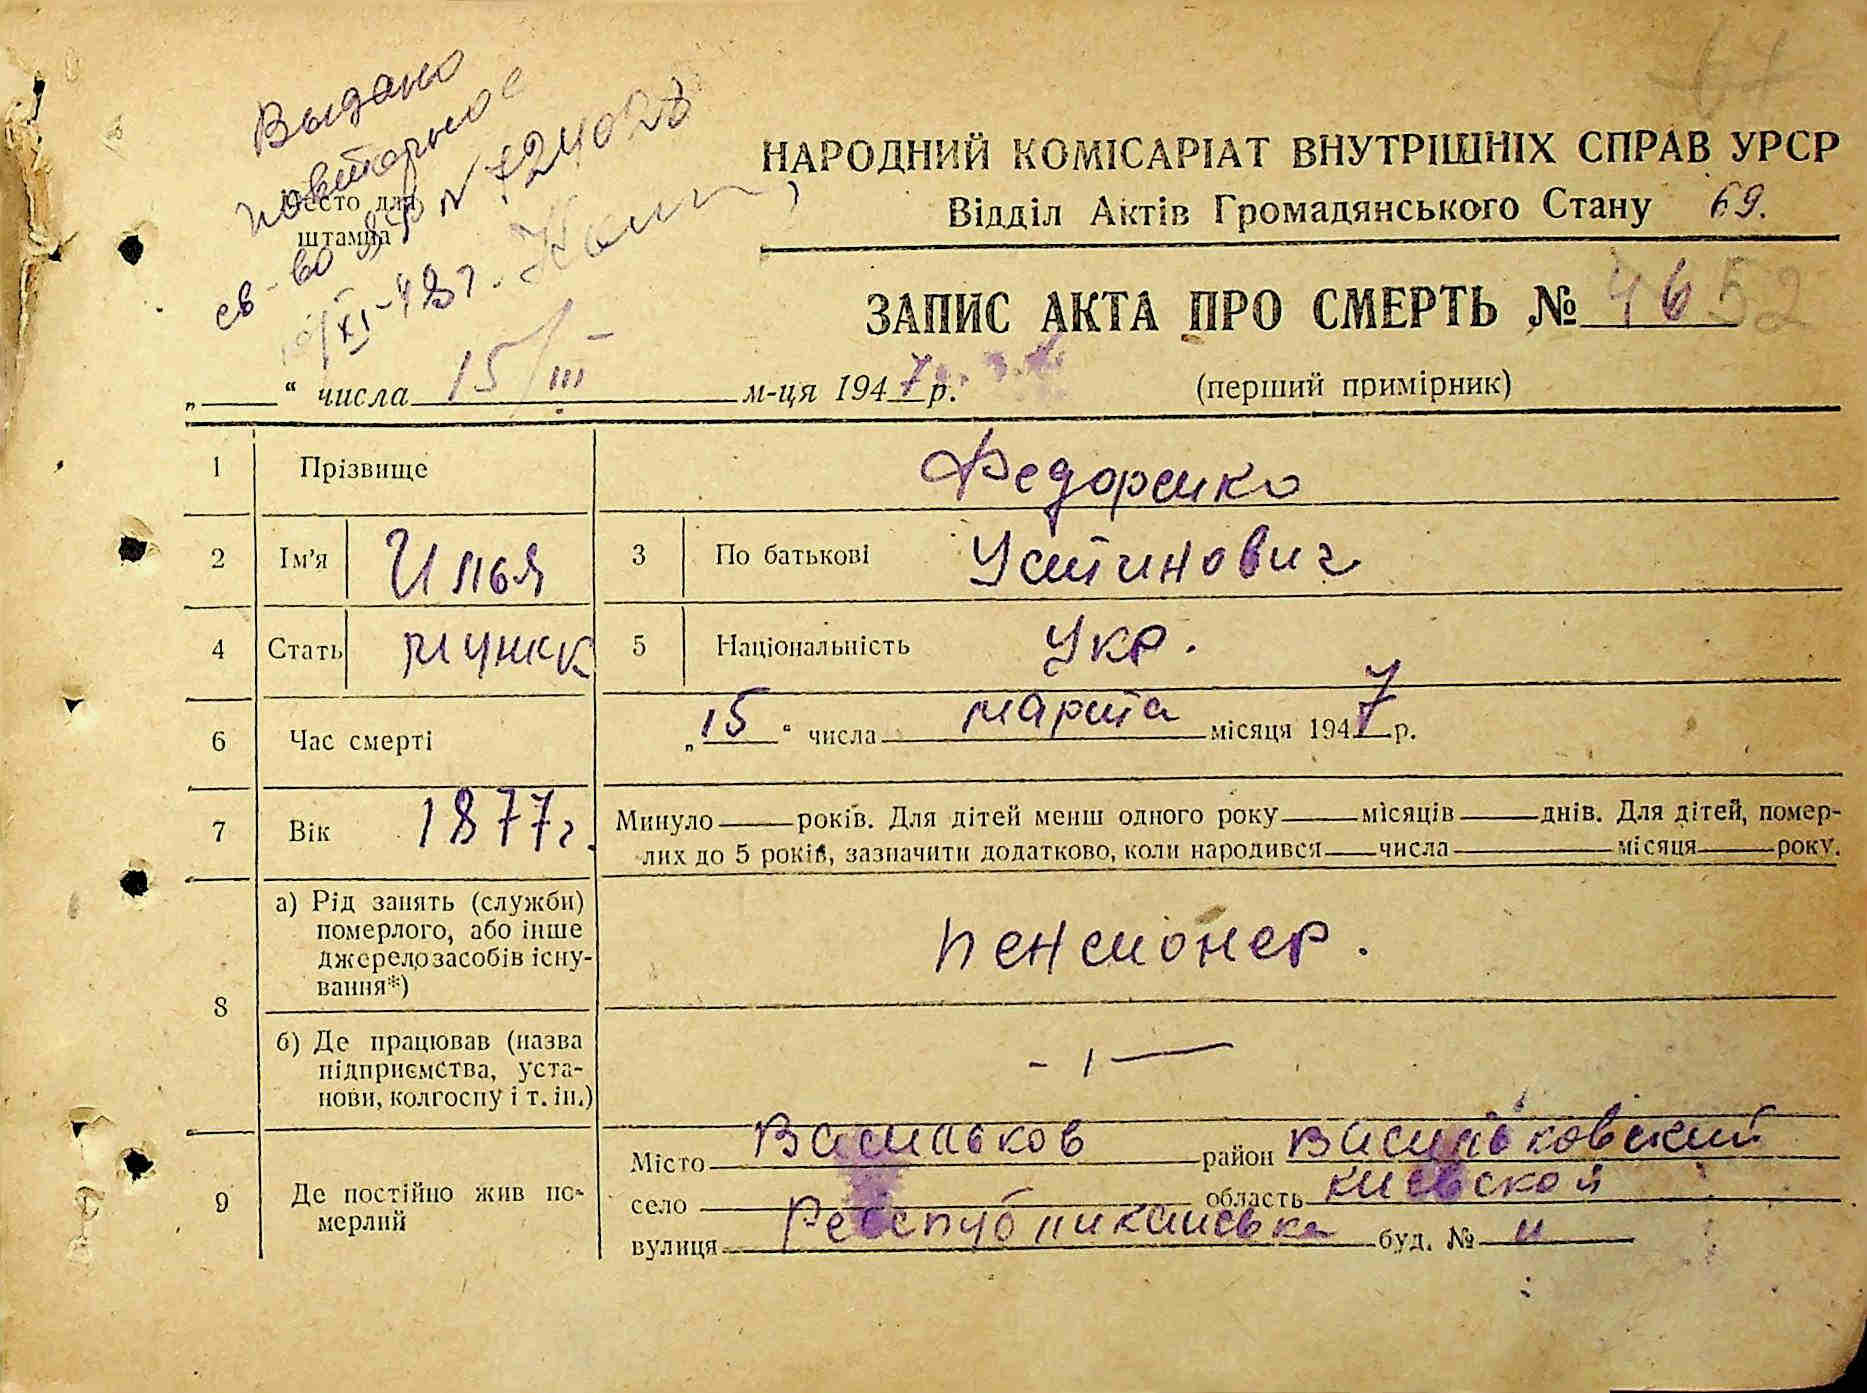 Выдано
повторное
св-во ЯР № 724023
10/XI-48 г.
Место для
штампа
НАРОДНИЙ КОМІСАРІАТ ВНУТРІШНІХ СПРАВ УРСР
Відділ Актів Громадянського Стану 69.
ЗАПИС АКТА ПРО СМЕРТЬ № 46 52
„ “ числа 15/III м-ця 1947 р. (перший примірник)
1 Прізвище Федоренко
2 Ім'я Илья 3 По батькові Устинович
4 Стать мужск 5 Національність Укр.
6 Час смерті „15“ числа марта місяця 1947 р.
7 Вік 1877 г. Минуло років. Для дітей менш одного року місяців днів. Для дітей, помер-
лих до 5 років, зазначити додатково, коли народився числа місяця року.
8 а) Рід занять (служби)
померлого, або інше
джерело засобів існу-
вання*)
пенсионер.
б) Де працював (назва
підприємства, уста-
нови, колгоспу і т. ін.)
9 Де постійно жив по-
мерлий
Місто Васильков район Васильковский
село область Киевской
вулиця Республиканська буд. № 11